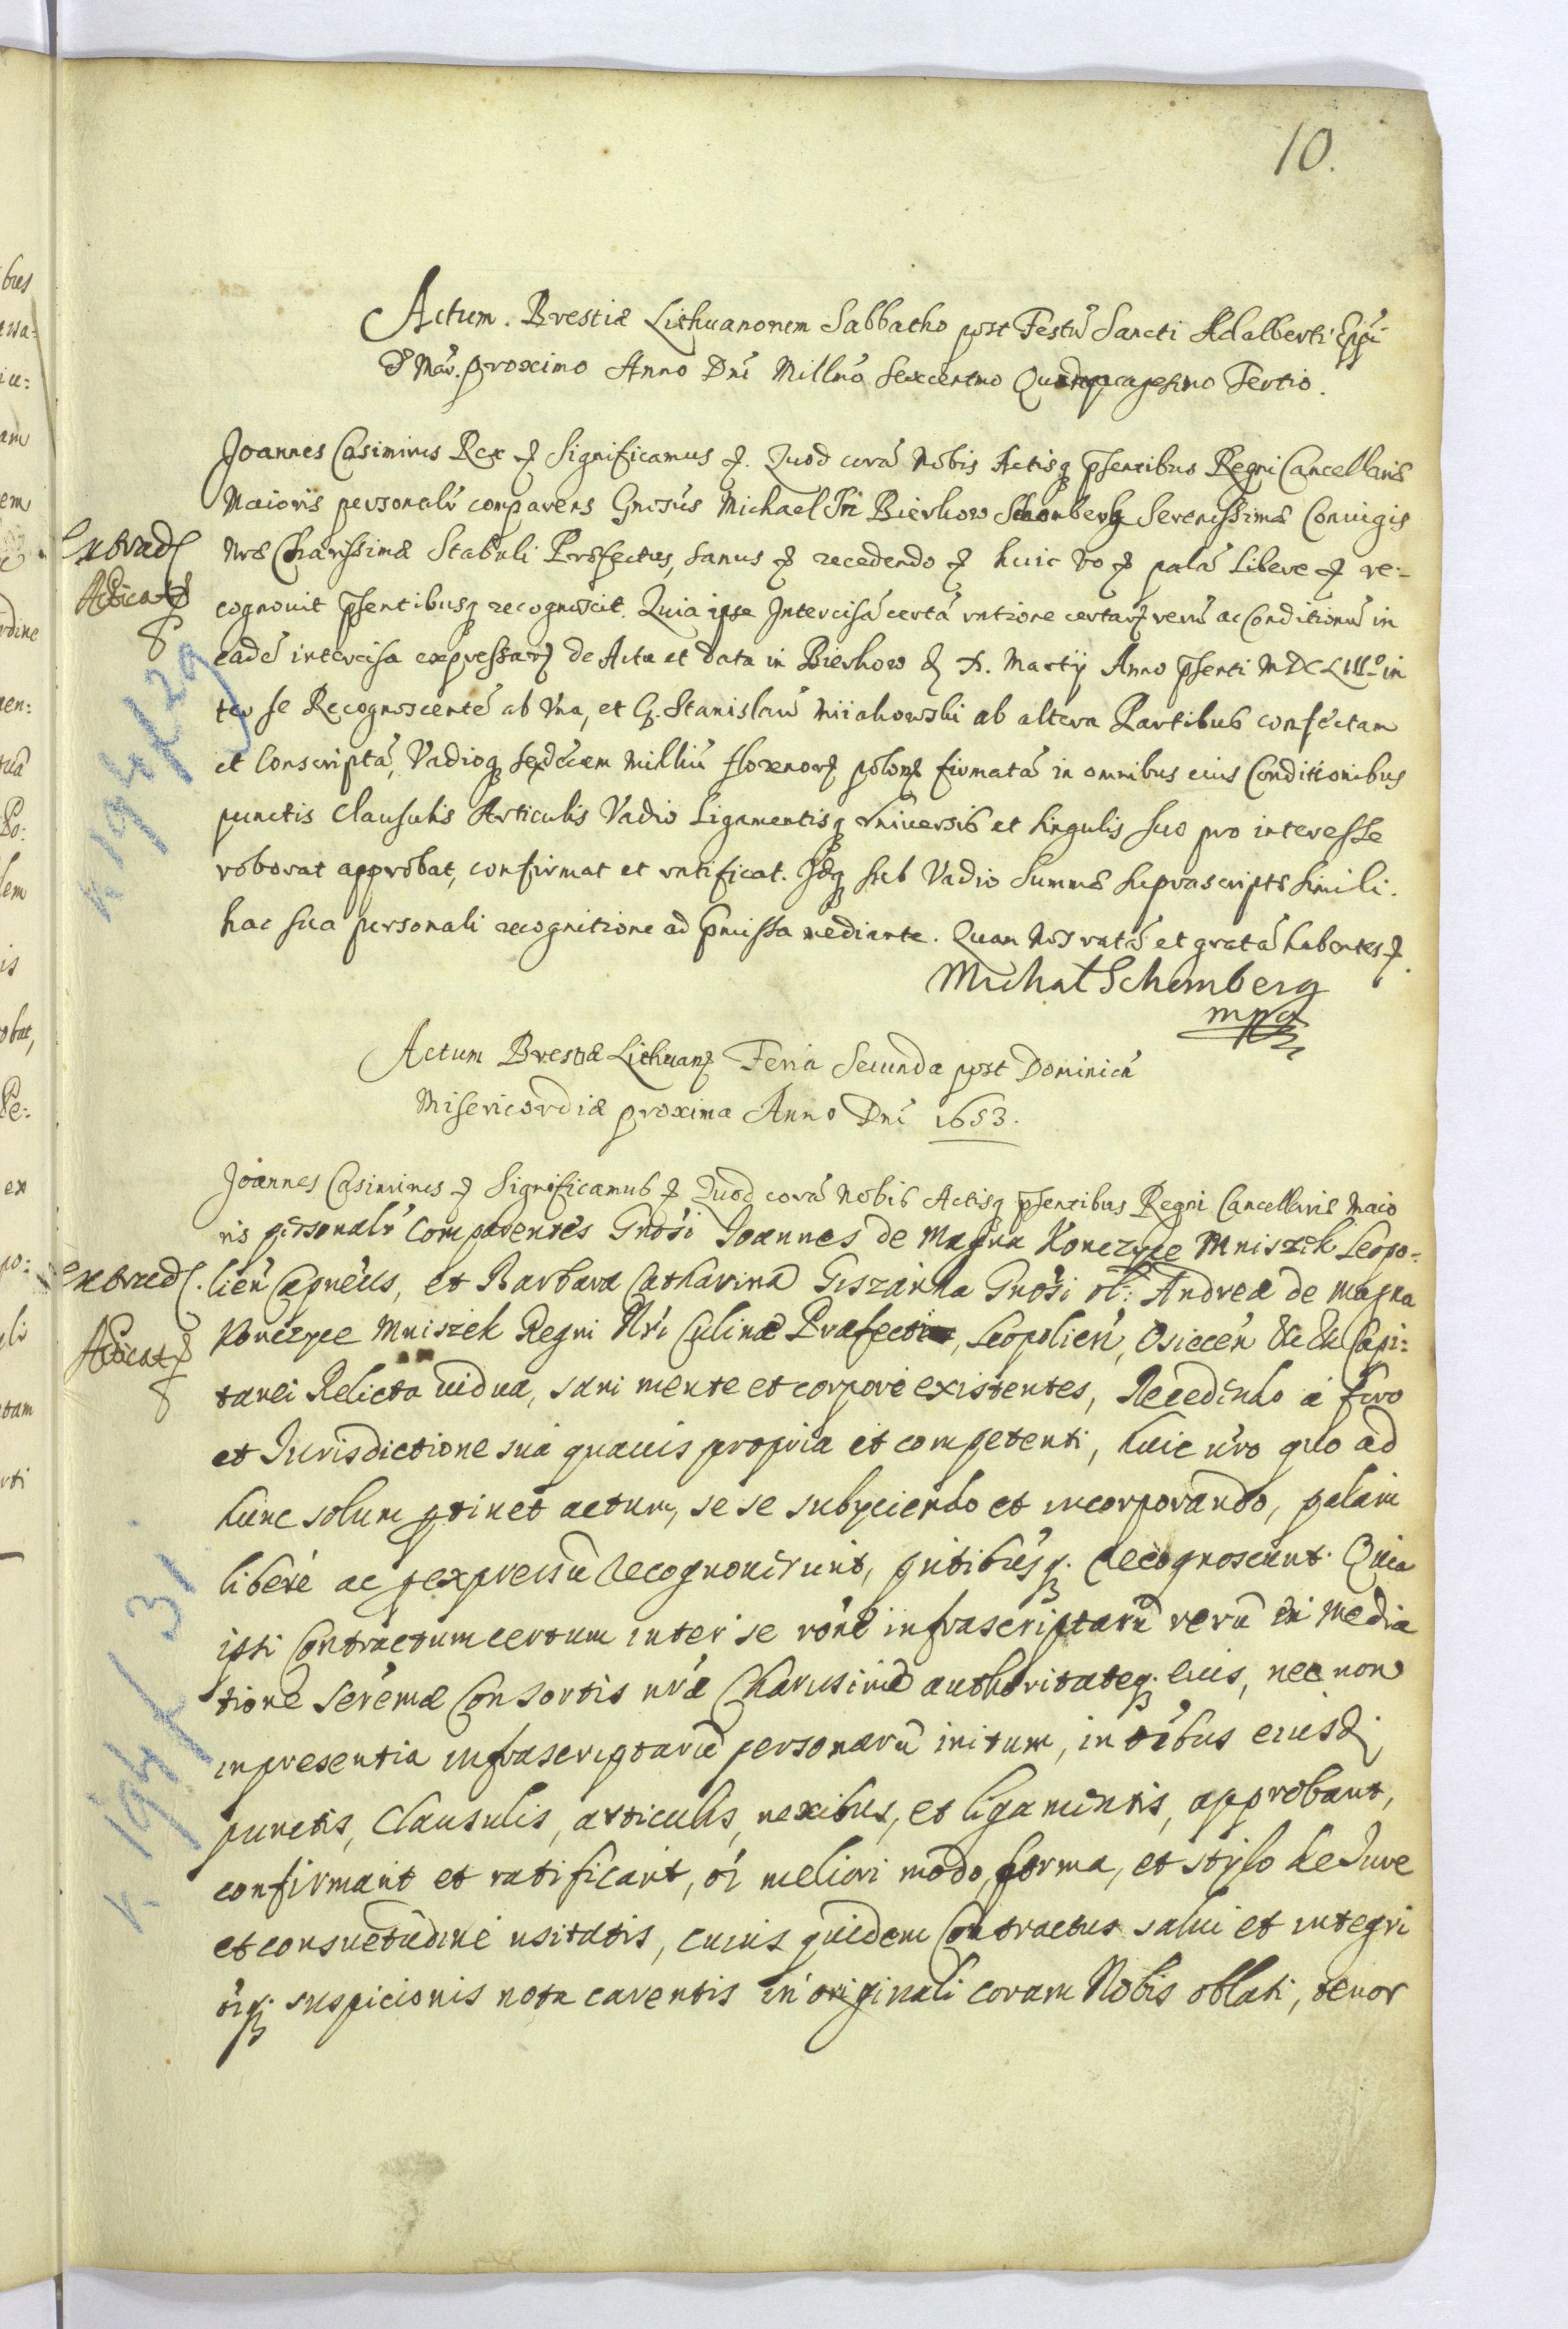 10.
Actum. Brestiæ Lithuanorum Sabbatho post Festũ Sancti Adalberti Eppi
et Mar. proximo Anno Dni Millmo Sexcentmo Quinquagesimo Tertio.
Joannes Casimirus Rex Significamus. Quod corã Nobis Actisq pñsentibus Regni Cancellariæ
Maioris personalr comparens Gnosus Michael in Bierkow Schonberg Serenissimæ Coniugis
Nræ Charissimæ Stabuli Præfectus, sanus recedendo huic vo palã Libere re-
cognouit pñsentibusq recognoscit. Quia ipse Intercisã certã ratione certar rerũ ac Conditionũ in
eadẽ intercisa expressar de Actu et data in Bierkow X. Martij Anno pñsenti MDCLIIIº in
ter se Recognoscentẽ ab Vna, et G. Stanislaũ Miiakowski ab altera Partibus confectam
et Conscriptã, Vadioq sedecem milliũ florenor polon firmatã in omnibus eius Conditionibus
punctis Clausulis Articulis Vadio Ligamentisq vniuersis et singulis suo pro interesse
roborat approbat, confirmat et ratificat. Idq sub Vadio Summæ suprascriptæ simili.
hac sua personali recognitione ad præmissa mediante. Quam Nos ratã et gratã habentes.
Michal Schemberg
mpa
Extrad
Adicat
K 194 f 29
Actum Brestiæ Lithuan Feria Secunda post Dominicã
Misericordiæ proxima Anno Dni 1653.
Joannes Casimirus Significamus Quod corã Nobis Actisq pñsentibus Regni Cancellariæ Maio
ris personalr Comparentes Gnosi Joannes de Magna Konczyce Mniszek Leopo-
lien Capneus, et Barbara Catharina Giszanka Gnosi ol: Andreæ de Magna
Konczyce Mniszek Regni Nri Culinæ Præfecti, Leopolien, Osiecen &c &c Capi:
tanei Relicta uidua, sani mente et corpore existentes, Recedendo á foro
et Jurisdictione suá quauis propria et competenti, huic uro quo ad
hunc solum ptinet actum, se se subyciendo et incorporando, palam
liberé ac p expressũ recognouerunt, pntibusq. recognoscunt. Quia
ipsi Contractum certum inter se róne infrascriptarũ rerũ ex media
tione serẽmæ Consortis nræ Charissimæ authoritateq. eius, nec non
in presentia infrascriptarũ personarũ initum, in oibus eiusd
punctis, Clausulis, articulis, nexibus, et ligamentis, approbant,
confirmant et ratificant, oi meliori modo, forma, et stylo de Jure
et consuetudine usitatis, cuius quidem Contractus salui et integri
oiq. suspicionis nota carentis in originali coram Nobis oblati, tenor
Extrad.
Adicat
K. 194 f 31.